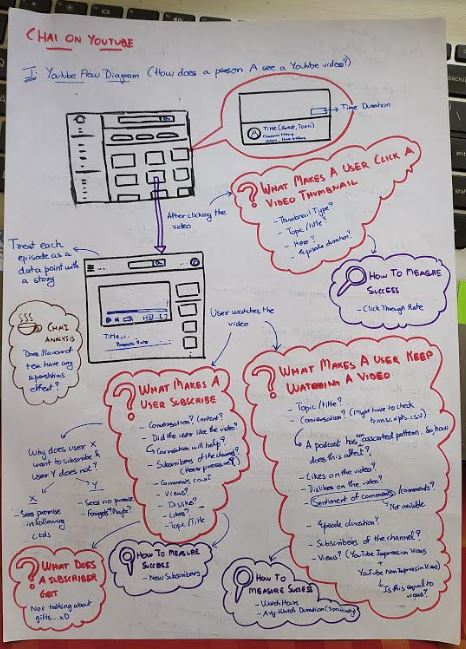 CHAI ON YOUTUBE
I: Youtube Flow Diagram (How does a person A see a Youtube video?)
Time Duration
Title (Game, Topic)
After clicking the
video
WHAT MAKES A USER CLICK A
VIDEO THUMBNAIL
- Thumbnail Type?
- Topic/title?
- Hero?
- Episode duration?
HOW TO MEASURE
SUCCESS
- Click Through Rate
Treat each
episode as a
data point with
a story
Title...
CHAI
ANALYSIS
Does flavour of
tea have any
superstitious
effect?
User watches the
video
WHAT MAKES A
USER SUBSCRIBE
- Conversation? Content?
- Did the user like the video?
Correlation will help?
- Subscribers of the channel?
(Peer pressure?)
- Comments count?
- Views?
- Dislike?
- Likes?
- Topic/Title
Why does user X
want to subscribe &
user Y does not?
X
- Sees promise
in following
CTDS
Y
- Sees no promise
- Forgets? Maybe?
WHAT DOES
A SUBSCRIBER
GET
Not talking about
gifts...xD
HOW TO MEASURE
SUCCESS
- New Subscribers
WHAT MAKES A USER KEEP
WATCHING A VIDEO
- Topic/title?
- Conversation? (Might have to check
transcripts.csv)
A podcast has an associated pattern. So, how
does this affect?
- Likes on the video?
- Dislikes on the video?
- Sentiment of comments/comments?
Not reliable
- Episode duration?
- Subscribers of the channel?
- Views? (YouTube Impression Views
+
YouTube Non Impression Views)
Is this equal to
views?
HOW TO
MEASURE SUCCESS
- Watch Hours
- Avg. Watch Duration (specially)